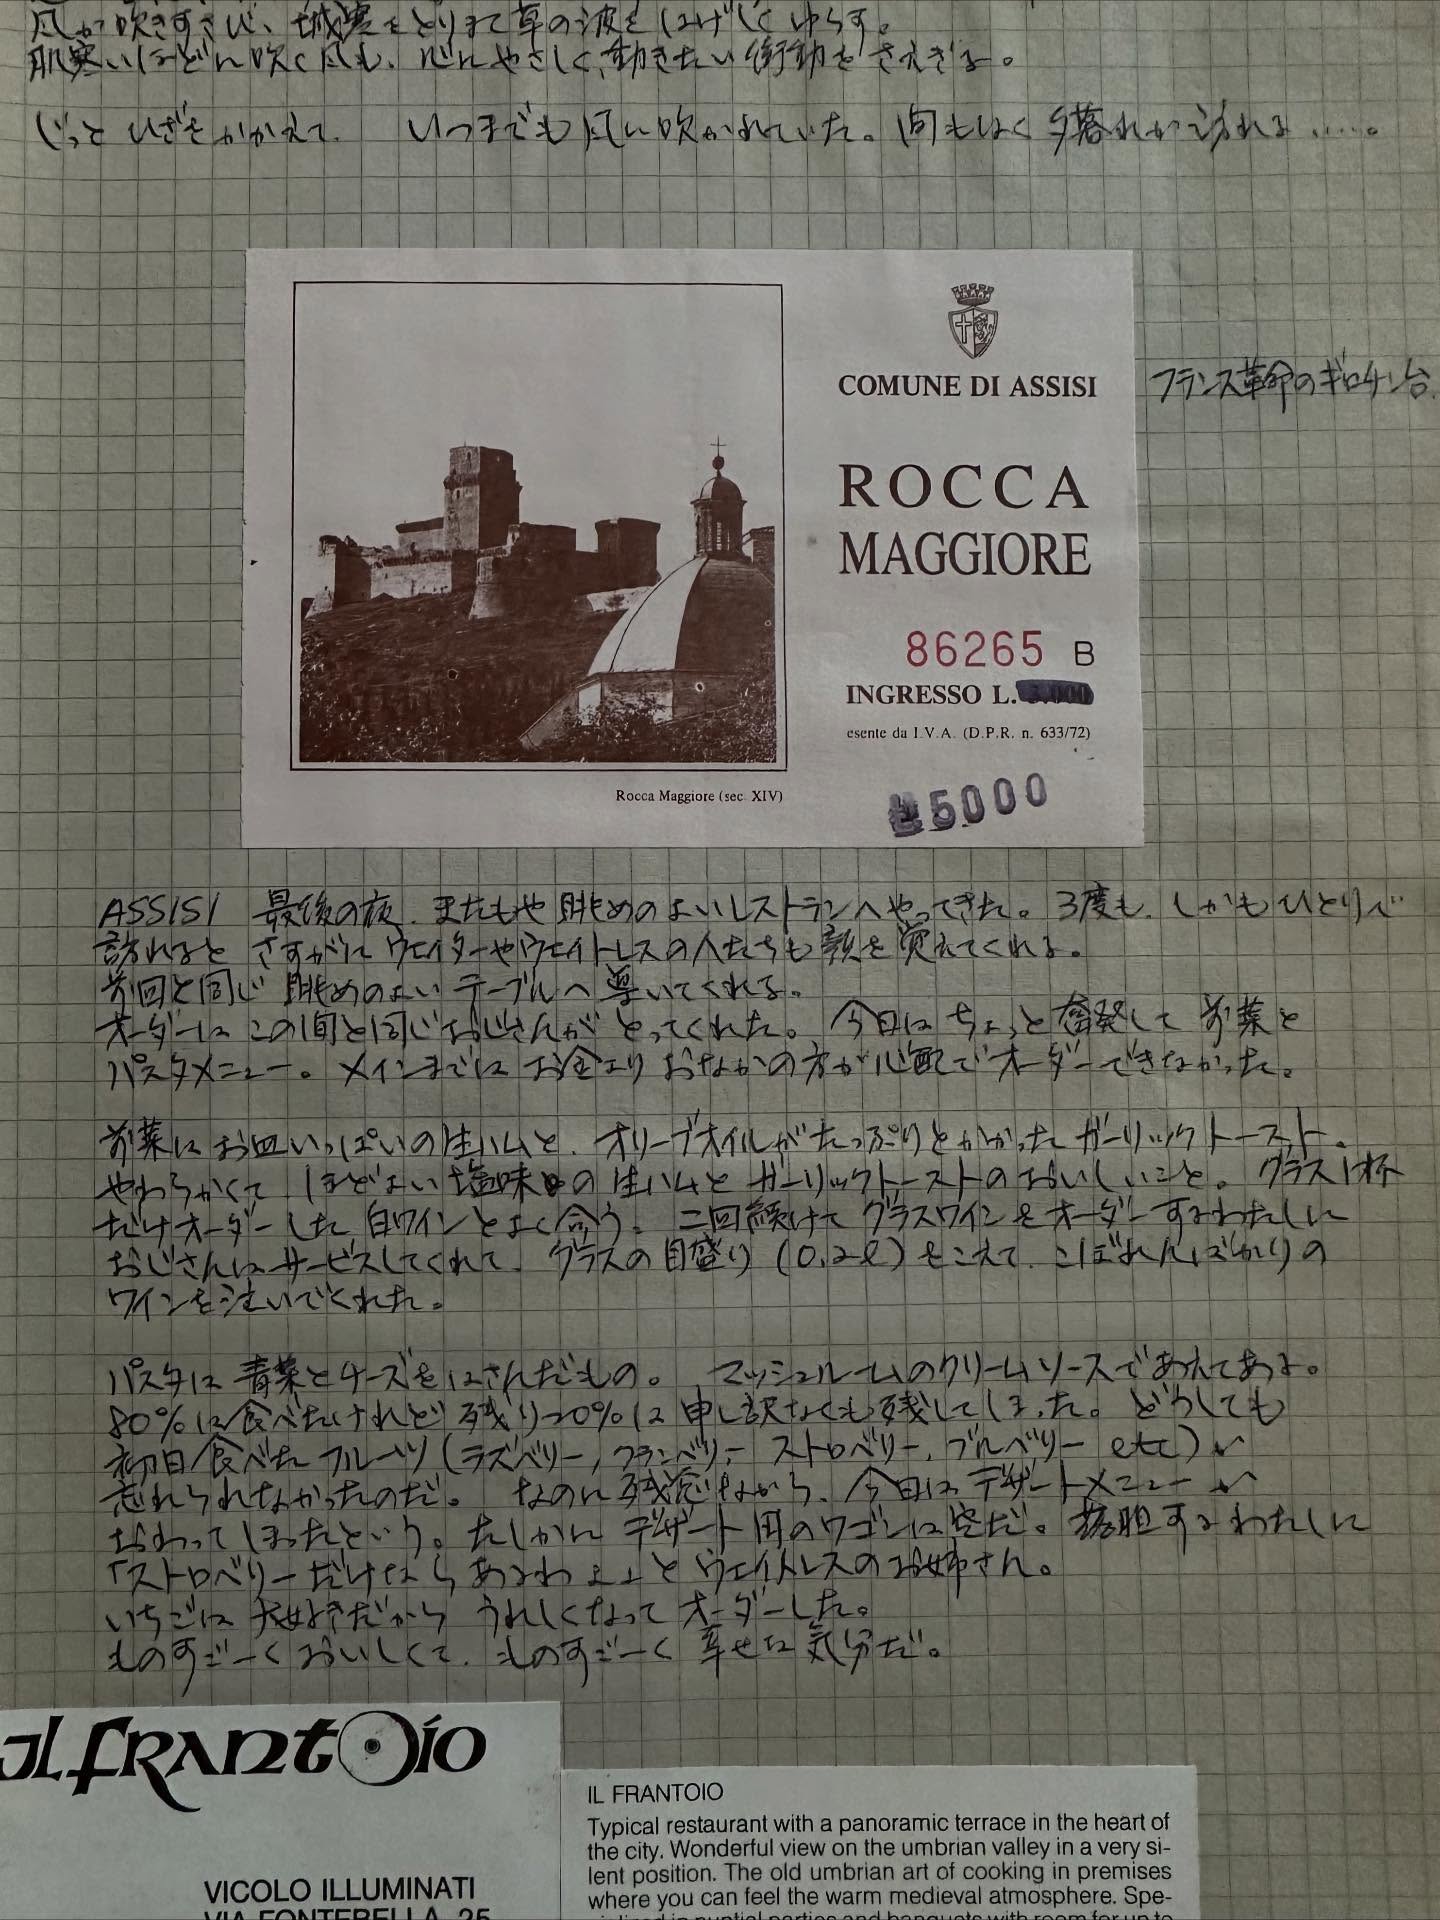 風が吹きすさび、城塞をとりまく草の波をはげしくゆらす。
肌寒いほどに吹く風も、心にやさしく、動きたい衝動をさえぎる。
じっとひざをかかえて、いつまでも風に吹かれていた。間もなく夕暮れが訪れる……。
COMUNE DI ASSISI
フランス革命のギロチン台
ROCCA
MAGGIORE
86265 B
INGRESSO L.
esente da I.V.A. (D.P.R. n. 633/72)
Rocca Maggiore (sec. XIV)
5000
ASSISI 最後の夜、またもや眺めのよいレストランへやってきた。3度も、しかもひとりで
訪れると さすがに ウェイターやウェイトレスの人たちも顔を覚えてくれる。
前回と同じ 眺めのよい テーブルへ 導いてくれる。
オーダーは この間と同じおじさんが とってくれた。今日は ちょっと奮発して 前菜と
パスタメニュー。メインまでは お金より おなかの方が心配で オーダーできなかった。
前菜は お皿いっぱいの生ハムと、オリーブオイルがたっぷりとかかった ガーリックトースト。
やわらかくて ほどよい塩味の 生ハムと ガーリックトーストのおいしいこと。グラス1杯
だけオーダーした 白ワインとよく合う。二回続けて グラスワインをオーダーするわたしに
おじさんは サービスしてくれて、グラスの目盛り (0.2ℓ) をこえて、こぼれんばかりの
ワインを注いでくれた。
パスタは 青菜とチーズをはさんだもの。マッシュルームのクリームソースであえてある。
80%は食べたけれど 残り20%は 申し訳なくも残してしまった。どうしても
初日食べた フルーツ (ラズベリー, クランベリー, ストロベリー, ブルーベリー etc) が
忘れられなかったのだ。なのに 残念ながら、今日は デザートメニューが
おわってしまったという。たしかに デザート用のワゴンは空だ。落胆するわたしに
「ストロベリーだけなら あるわよ」と ウェイトレスのお姉さん。
いちごは 大好きだから うれしくなって オーダーした。
ものすごーくおいしくて、ものすごーく 幸せな気分だ。
il frantoio
VICOLO ILLUMINATI
VIA FONTEBELLA, 25
IL FRANTOIO
Typical restaurant with a panoramic terrace in the heart of
the city. Wonderful view on the umbrian valley in a very si-
lent position. The old umbrian art of cooking in premises
where you can feel the warm medieval atmosphere. Spe-
cialized in nuptial parties and banquets with room for up to